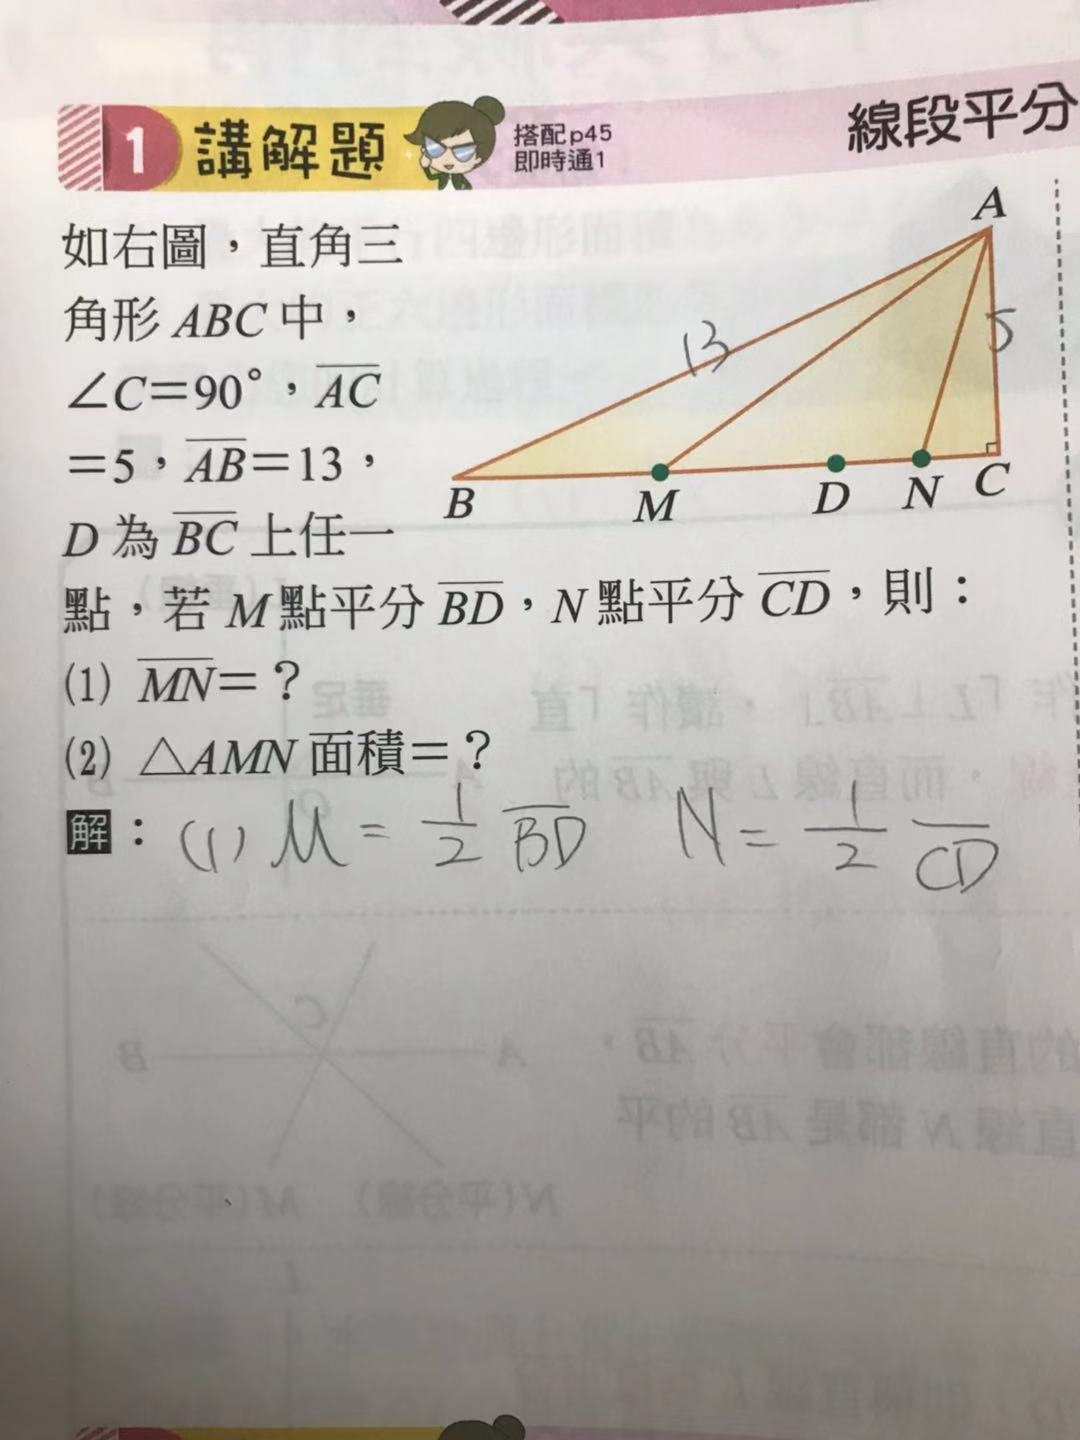 1 講解題
搭配p45
即時通1
線段平分
如右圖，直角三
角形 ABC 中，
∠C=90°，AC
=5，AB=13，
D 為 BC 上任一
點，若 M 點平分 BD，N 點平分 CD，則：
(1) MN=？
(2) △AMN 面積=？
A
13
5
B
M
D
N
C
解：(1) M = 1/2 BD N = 1/2 CD